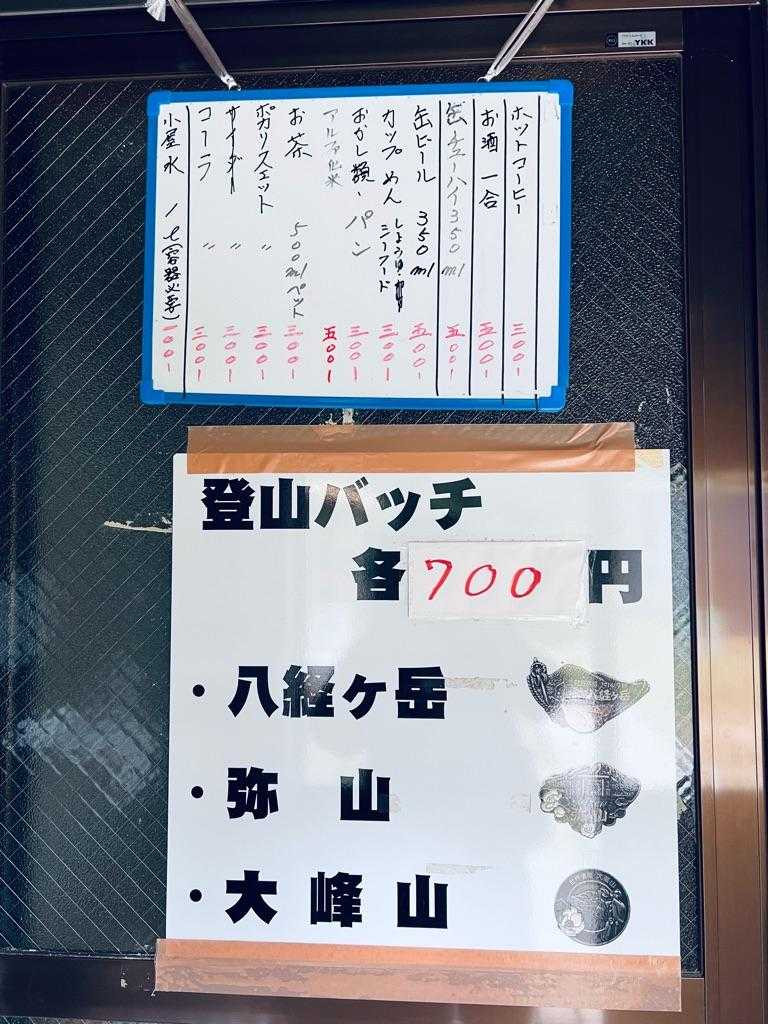 ホットコーヒー 三〇〇ー
お酒 一合 五〇〇ー
缶チューハイ 350ml 五〇〇ー
缶ビール 350ml 五〇〇ー
カップめん しょうゆ・シーフード 三〇〇ー
おかし類・パン 三〇〇ー
アルファ化米 五〇〇ー
お茶 500mlペット 三〇〇ー
ポカリスエット 〃 三〇〇ー
サイダー 〃 三〇〇ー
コーラ 〃 三〇〇ー
小屋水 1ℓ(容器必要) 一〇〇ー
YKK
登山バッチ
各700円
・八経ヶ岳
・弥 山
・大 峰 山